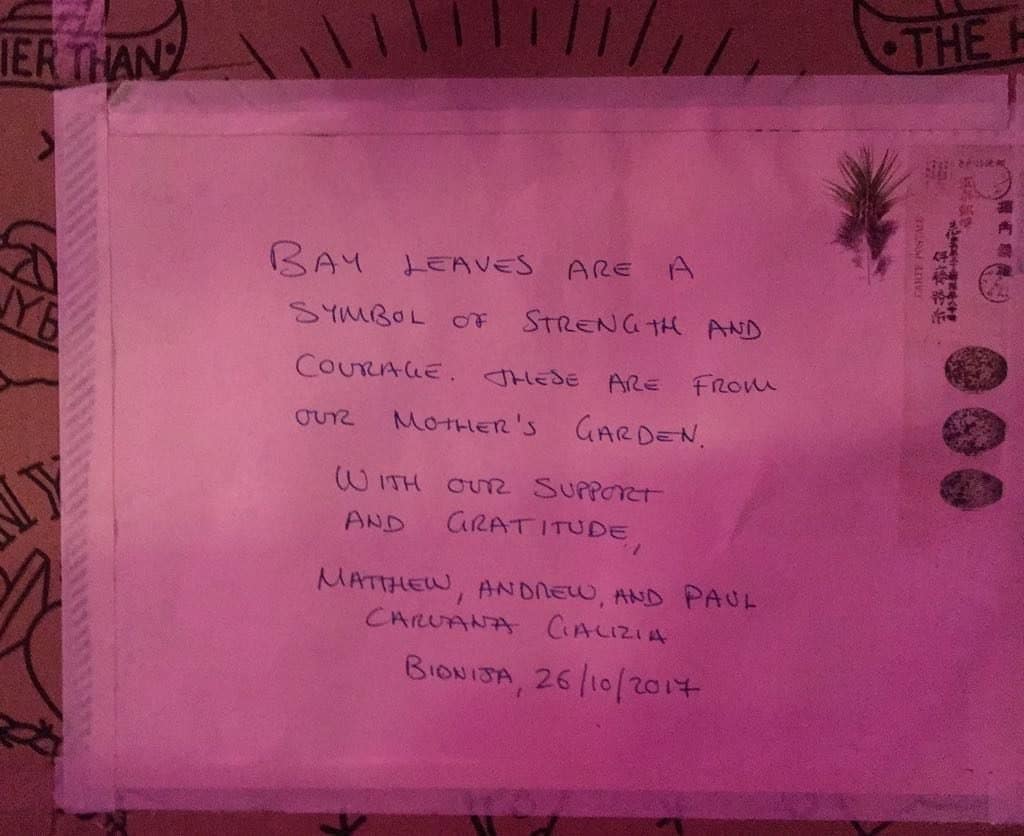 IER THAN
THE H
BAY LEAVES ARE A
SYMBOL OF STRENGTH AND
COURAGE. THESE ARE FROM
OUR MOTHER'S GARDEN.
WITH OUR SUPPORT
AND GRATITUDE,
MATTHEW, ANDREW, AND PAUL
CARUANA GALIZIA
BIDNIJA, 26/10/2017